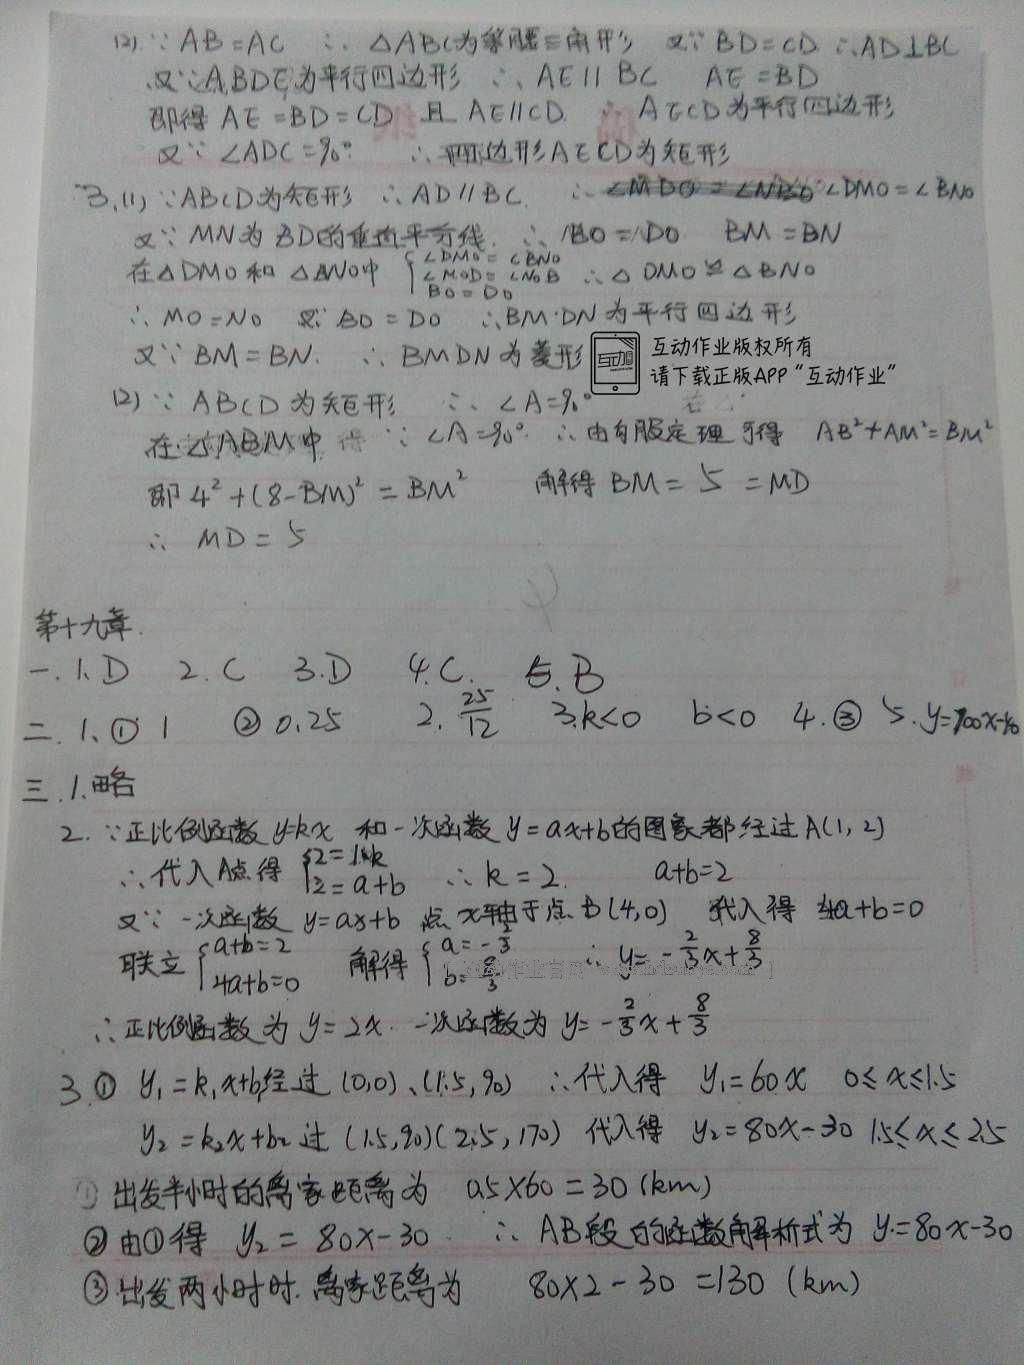 (2). ∵ AB=AC ∴ △ABC为等腰三角形 又∵ BD=CD ∴AD⊥BC
又∵ABDE为平行四边形 ∴ AE∥BC AE=BD
即得 AE=BD=CD 且 AE∥CD ∴ AECD为平行四边形
又∵ ∠ADC=90° ∴四边形AECD为矩形
3.(1) ∵ABCD为矩形 ∴AD∥BC. ∴ ∠DMO=∠BNO
又∵ MN为BD的垂直平分线. ∴ BO=DO BM=BN
在△DMO和△BNO中 {∠DMO=∠BNO ∠MOD=∠NOB BO=DO ∴△DMO≌△BNO
∴ MO=NO 又∵ BO=DO ∴BMDN为平行四边形
又∵ BM=BN. ∴ BMDN为菱形
互动作业版权所有
请下载正版APP“互动作业”
(2) ∵ ABCD为矩形 ∴ ∠A=90°
在△ABM中 ∵ ∠A=90° ∴由勾股定理可得 AB²+AM²=BM²
即 4²+(8-BM)²=BM² 解得 BM=5=MD
∴ MD=5
第十九章.
一. 1. D 2. C 3. D 4. C. 5. B
二. 1. ① 1 ② 0.25 2. 25/12 3. k<0 b<0 4. ③ 5. y=100x-40
三. 1. 略
2. ∵正比例函数y=kx 和一次函数y=ax+b的图象都经过A(1,2)
∴代入A点得 {2=1·k 2=a+b ∴k=2. a+b=2
又∵ 一次函数 y=ax+b 点 x轴于点B(4,0) 代入得 4a+b=0
联立 {a+b=2 4a+b=0 解得 {a=-2/3 b=8/3 ∴ y=-2/3x+8/3
∴正比例函数为 y=2x. 一次函数为 y=-2/3x+8/3
3. ① y₁=k₁x+b经过 (0,0)、(1.5,90) ∴代入得 y₁=60x 0≤x≤1.5
y₂=k₂x+b₂过 (1.5,90)(2.5,170) 代入得 y₂=80x-30 1.5≤x≤2.5
① 出发半小时时的离家距离为 0.5×60=30(km)
② 由①得 y₂=80x-30 ∴ AB段的函数解析式为 y=80x-30
③ 出发两小时时.离家距离为 80×2-30=130(km)